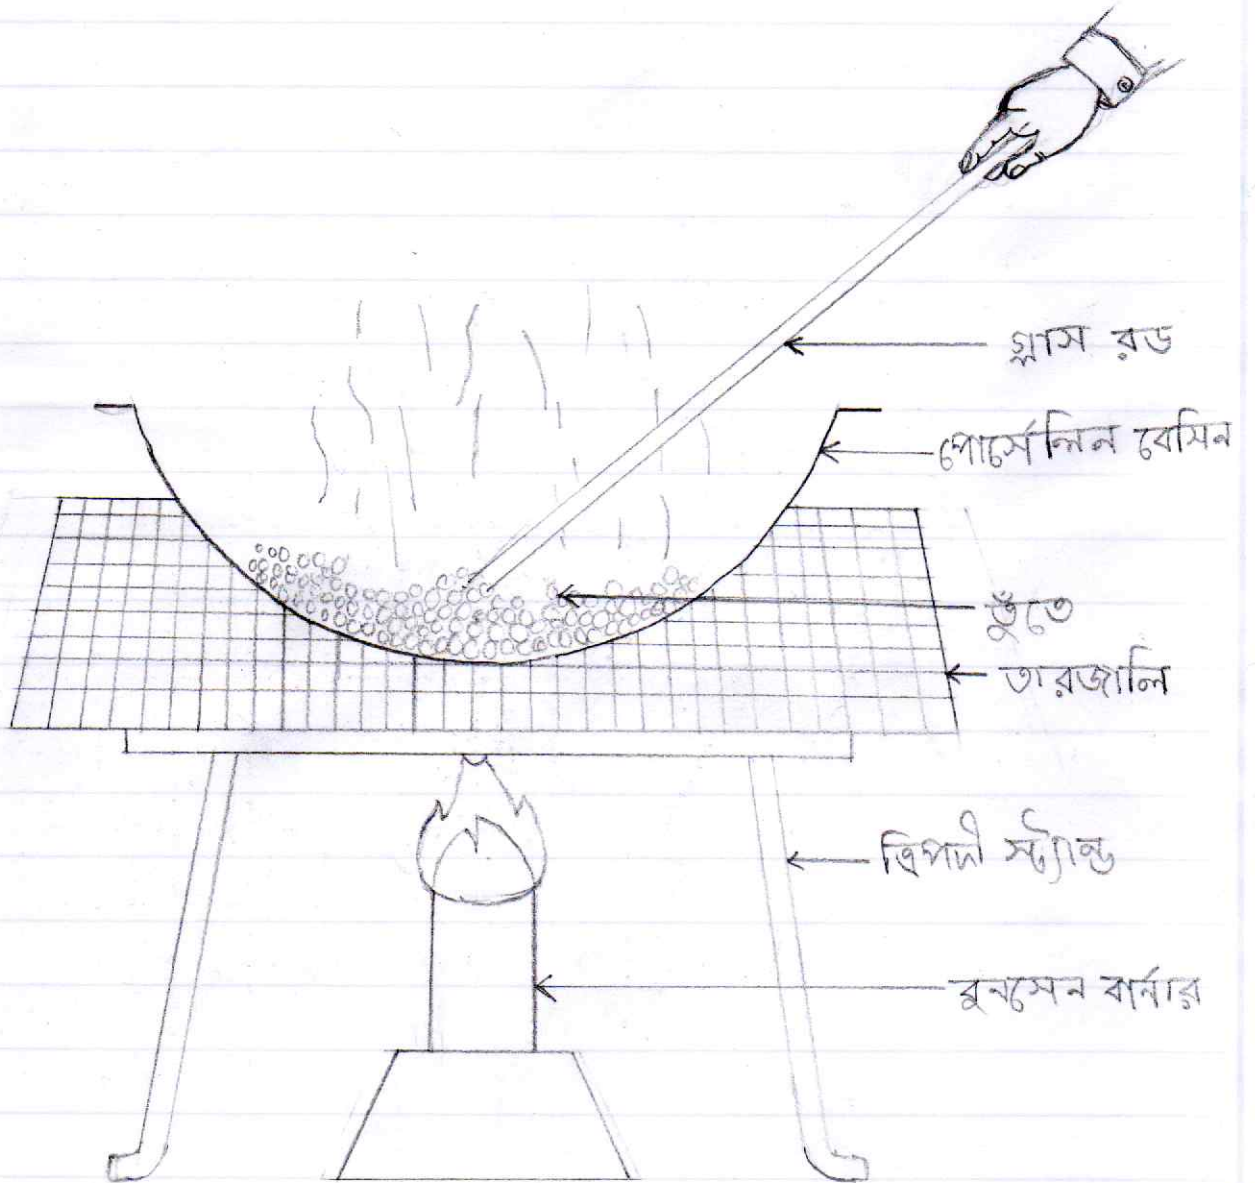 গ্লাস রড
পোর্সেলিন বেসিন
তুঁতে
তারজালি
ত্রিপদী স্ট্যান্ড
বুনসেন বার্নার